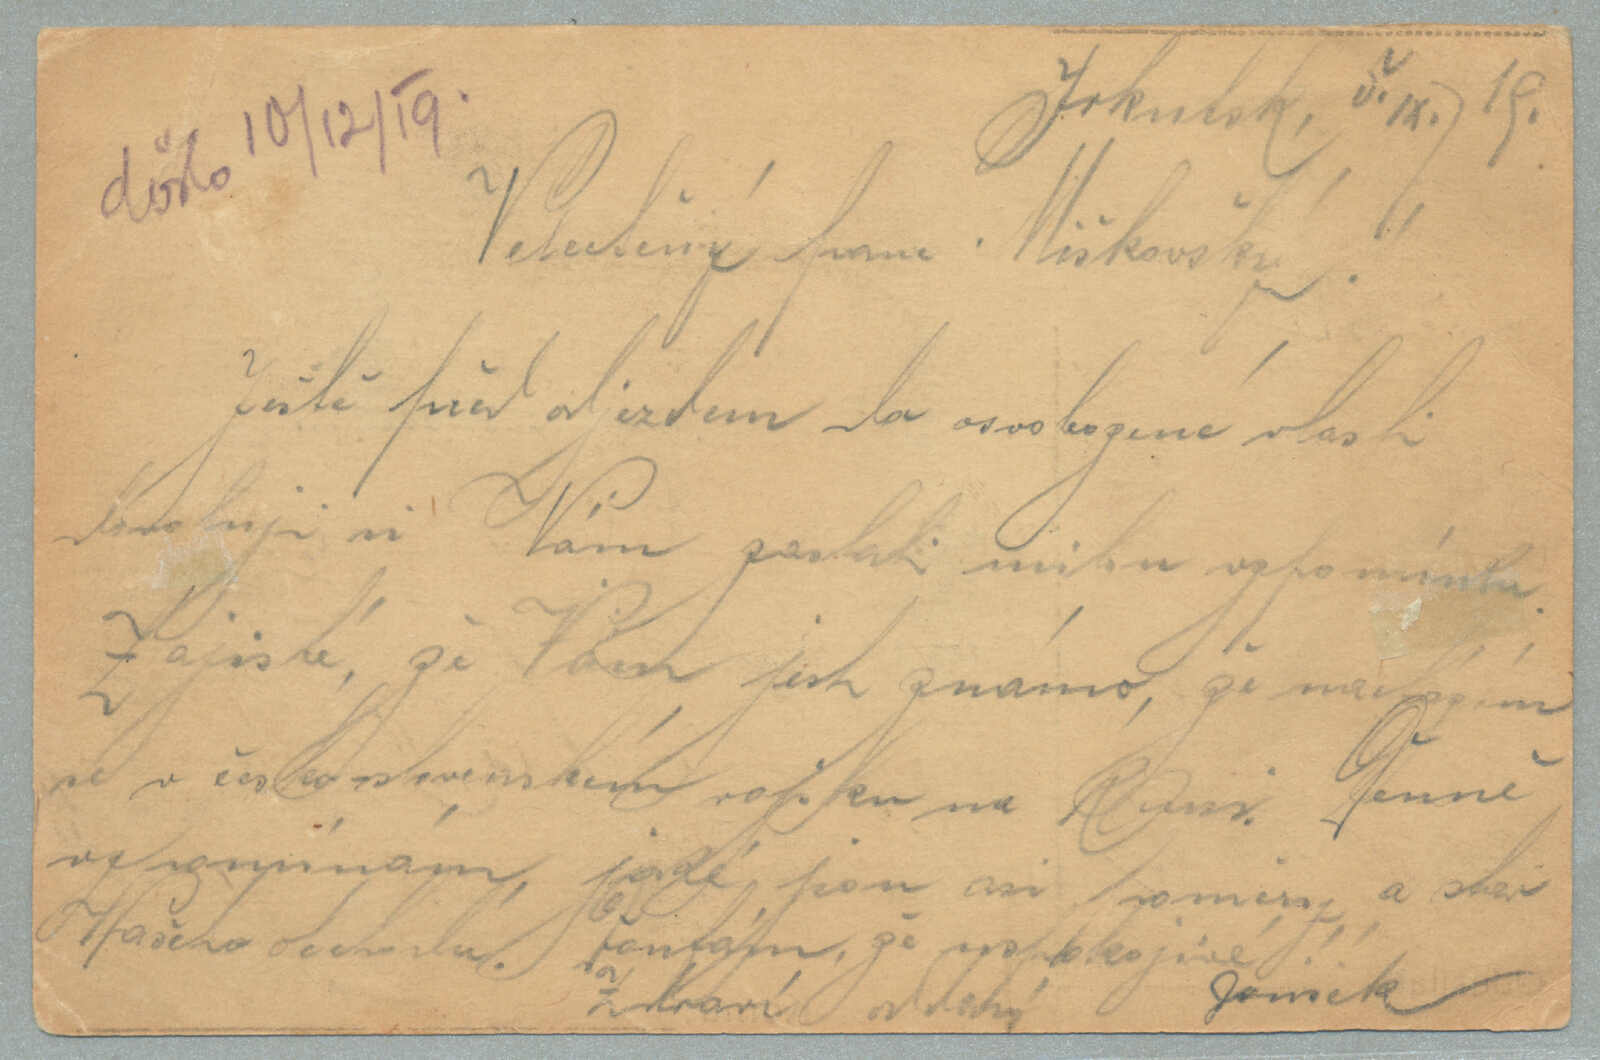 došlo 10/12/19.
Irkutsk, IX. 19.
Velectěný pane Miškovský!
Ještě před odjezdem do osvobozené vlasti
dovoluji si Vám zaslati milou vzpomínku.
Zajisté, že Vám jest známo, že nalézám
se v česko-slovenském vojsku na Rusi. Denně
vzpomínám, jaké jsou asi poměry a stav
Vašeho obchodu. Doufám, že uspokojivé!!
Zdraví oddaný Janísek